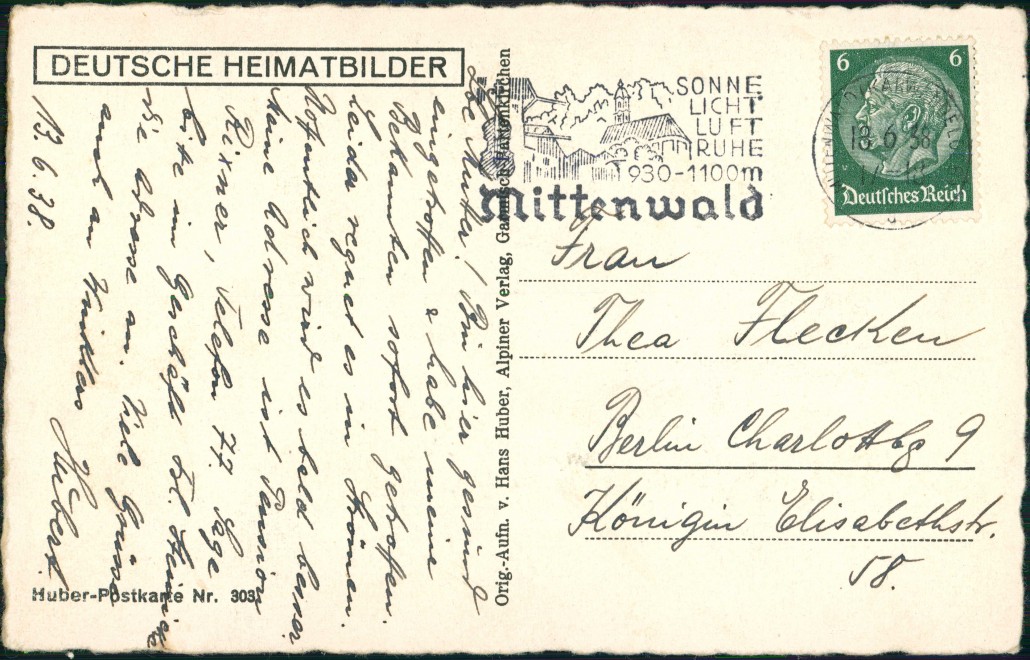 DEUTSCHE HEIMATBILDER
13.6.38.
Lbe Mutter! Bin hier gesund
eingetroffen & habe meine
Bekannten sofort getroffen.
Leider regnet es in Strömen.
Hoffentlich wird es bald besser.
Meine Adresse ist Pension
Rixner, Telefon 77. Sage
bitte im Geschäft Frl. Heinicke
die Adresse an. Viele Grüsse
auch an Winklers Hubert.
Huber-Postkarte Nr. 303
Orig.-Aufn. v. Hans Huber, Alpiner Verlag, Garmisch-Partenkirchen
SONNE
LICHT
LUFT
RUHE
930-1100m
Mittenwald
6 6
18.6.38
Deutsches Reich
Frau
Thea Flecken
Berlin Charlottbg 9
Königin Elisabethstr.
58.